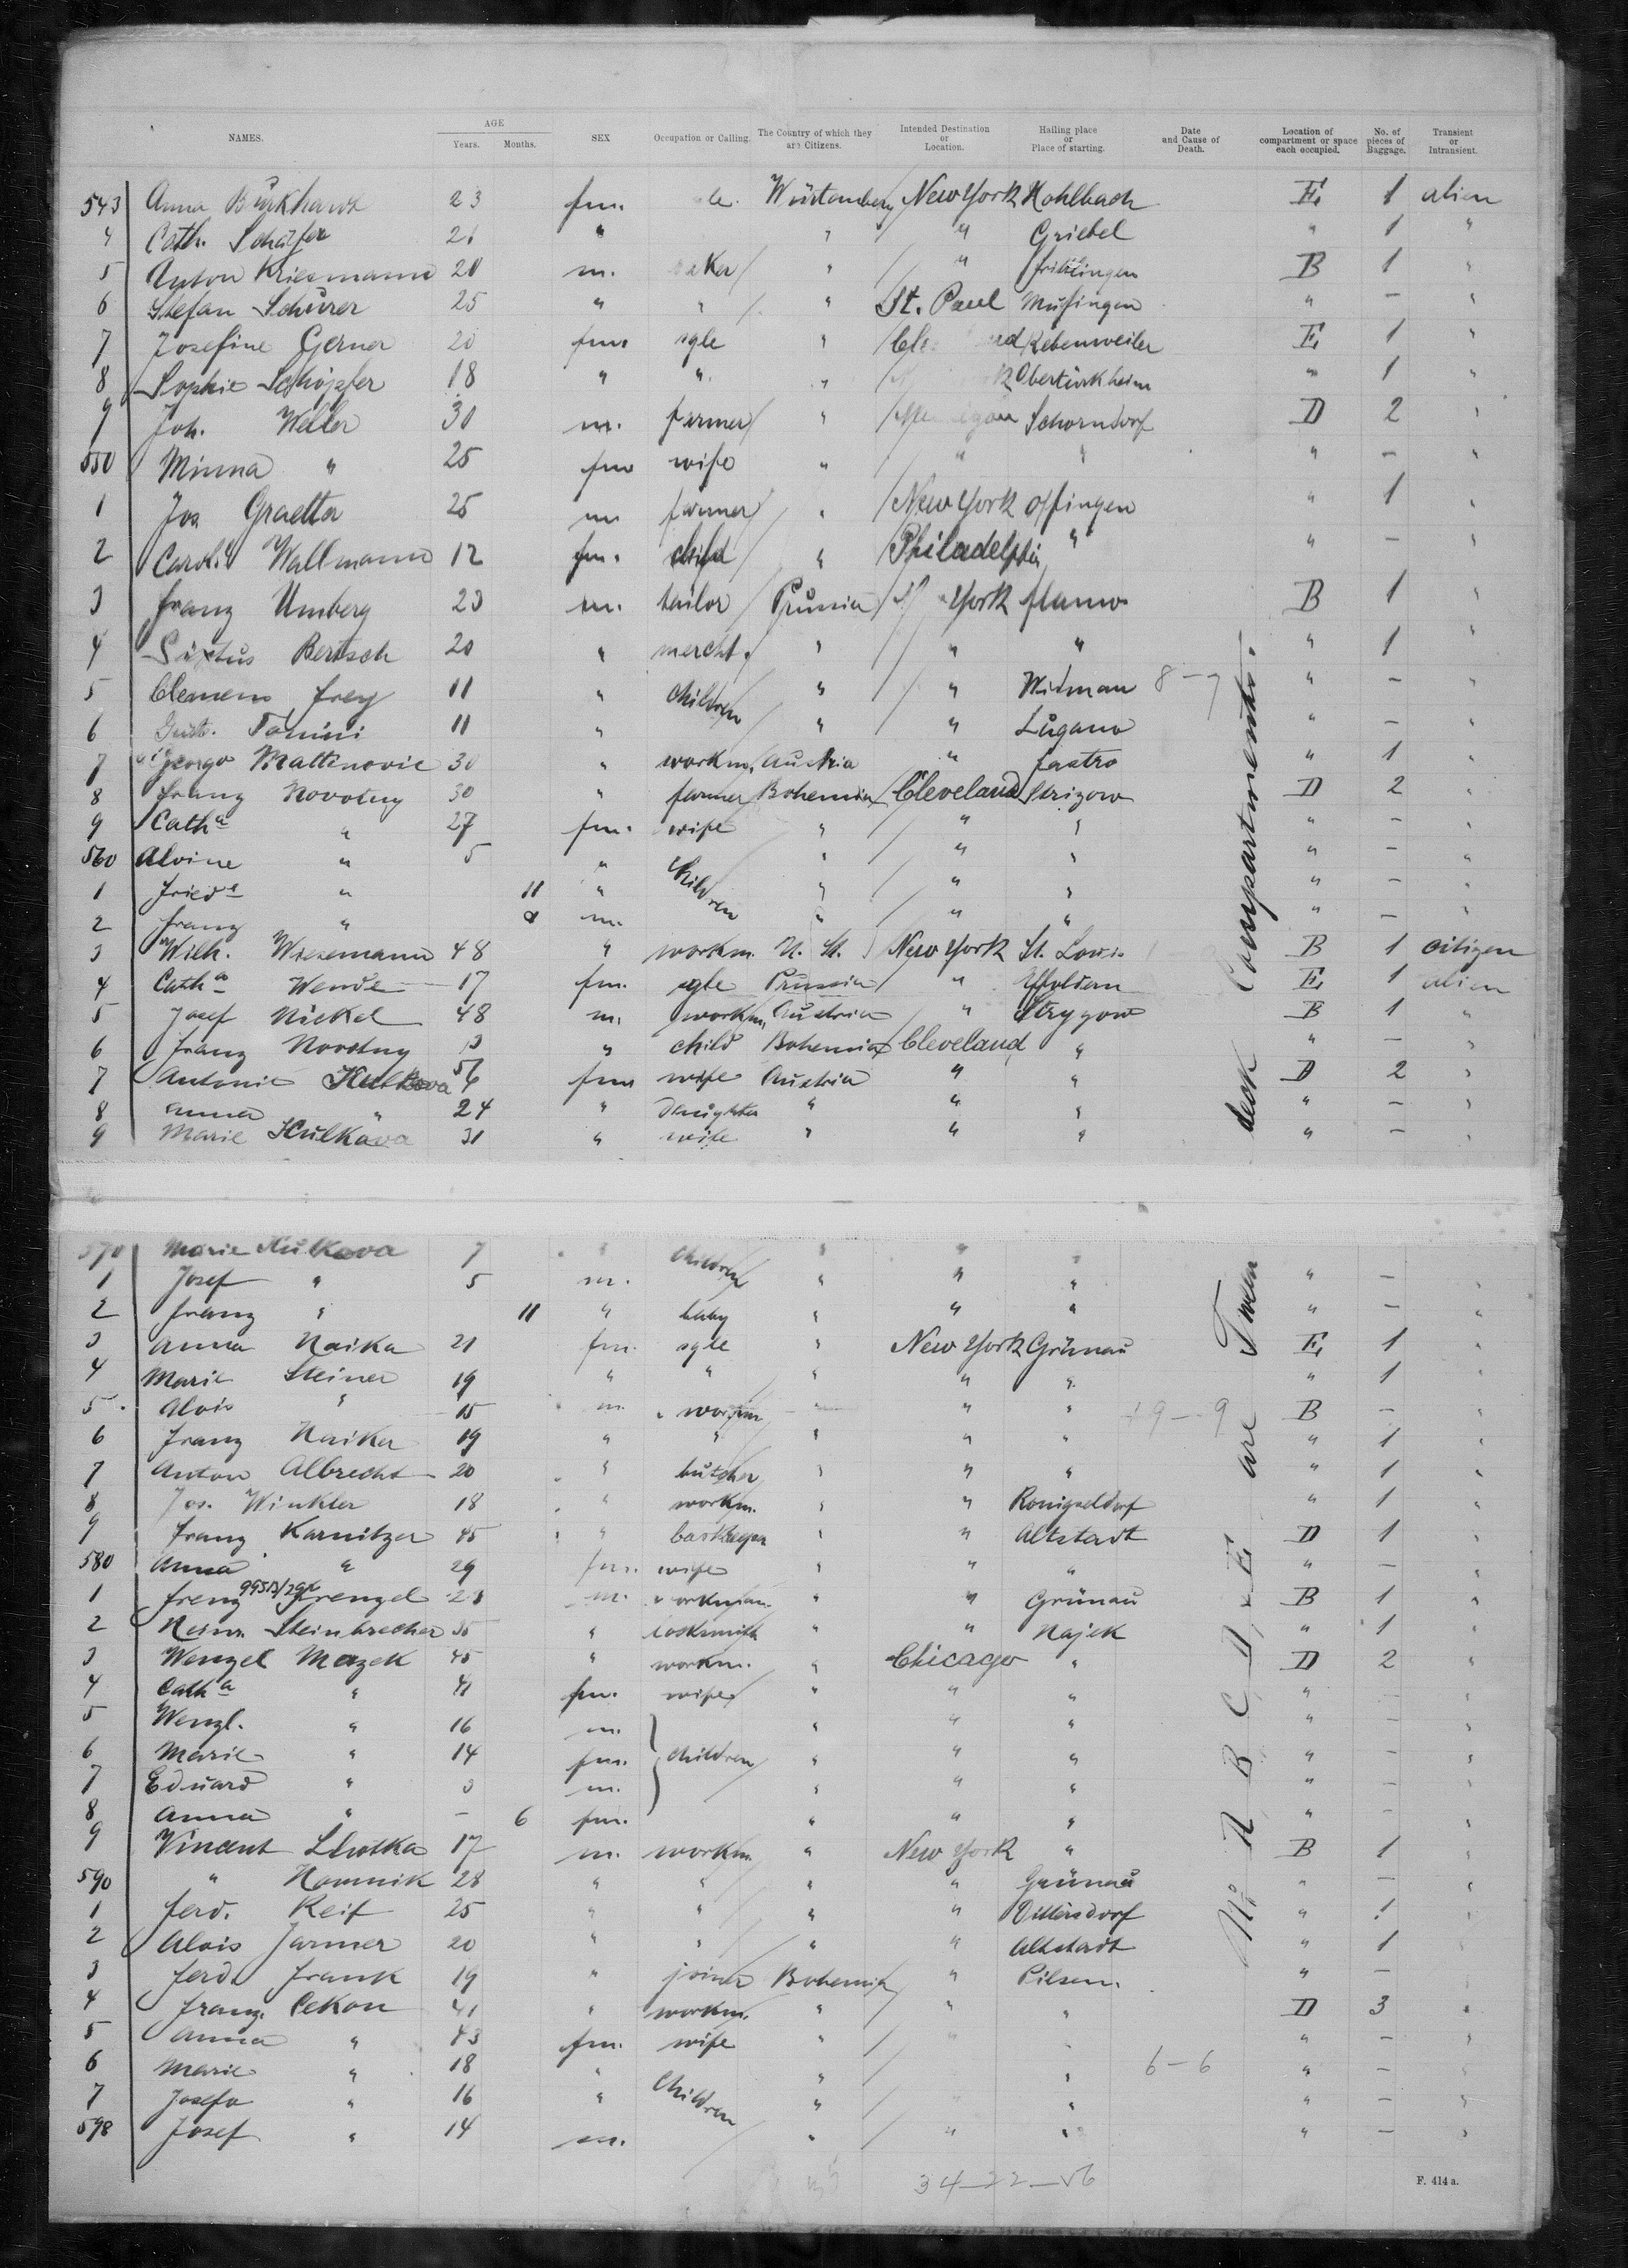 NAMES. AGE Years. Months. SEX Occupation or Calling. The Country of which they are Citizens. Intended Destination or Location. Hailing place or Place of starting. Date and Cause of Death. Location of compartment or space each occupied. No. of pieces of Baggage. Transient or Intransient.
543 Anna Burkhardt 23 fm. Würtemberg New York Kohlbach E 1 alien
4 Cath. Schäfer 21 " " " Griebel " 1 "
5 Anton Kriesmann 20 m. " " B 1 "
6 Stefan Schürer 25 " " " St. Paul Musingen " — "
7 Josefine Gerner 20 fm. sgle " Ebenweiler E 1 "
8 Sophie Schöpfer 18 " " " Obertürkheim " 1 "
9 Joh. Weller 30 m. farmer " Schorndorf D 2 "
550 Minna " 25 fm wife " " " " — "
1 Jos Graetta 25 m farmer " New York Offingen " 1 "
2 Carol. Wallmann 12 fm. child " Philadelphia " " — "
3 Franz Umberg 23 m. tailor Prussia York B 1 "
4 Sixtus Bertsch 20 " mercht. " " " " 1 "
5 Clemens Frey 11 " children " " Widnau 8-7 " — "
6 Gust. Tonini 11 " " " Lugano " — "
7 George Mattinovic 30 " workm. Austria " " 1 "
8 Franz Novotny 30 " farmer Bohemia Cleveland Strizow D 2 "
9 Catha " 27 fm. wife " " " " — "
560 Alvine " 5 " children " " " " — "
1 Frieda " 11 " " " " " — "
2 Franz " m. " " " " — "
3 Wilh. Wiesemann 48 " workm. U. St. New York St. Louis B 1 citizen
4 Catha Wende 17 fm. sgle Prussia " E 1 alien
5 Josef Nickel 48 m. workm. Austria " Strygow B 1 "
6 Franz Novotny " child Bohemia Cleveland " " — "
7 Antonie Kulkova 56 fm wife Austria " " D 2 "
8 Anna " 24 " daughter " " " " — "
9 Marie Kulkava 31 " wife " " " " — "
570 Marie Kulkava 7 " children " " " " — "
1 Josef " 5 m. " " " " — "
2 Franz " 11 " baby " " " " — "
3 Anna Naika 21 fm. sgle " New York Grünau E 1 "
4 Marie Steiner 19 " " " " " " 1 "
5 Alois " 15 m. workm " " " 19-9 B — "
6 Franz Naika 19 " " " " " " 1 "
7 Anton Albrecht 20 " butcher " " " " 1 "
8 Jos. Winkler 18 " workm. " " Konigseldorf " 1 "
9 Franz Karnitzer 45 " " " Altstadt D 1 "
580 Anna " 29 fm. wife " " " " — "
1 Frenzel m. workman " " Grünau B 1 "
2 Steinbrecher 35 " locksmith " " Najek " 1 "
3 Wenzel Mazek 45 " workm. " Chicago " D 2 "
4 Catha " 41 fm. wife " " " " — "
5 Wenzl. " 16 m. " " " " — "
6 Marie " 14 fm. children " " " " — "
7 Eduard " 3 m. " " " " — "
8 Anna " — 6 fm. " " " " — "
9 Vincent Slotka 17 m. workm " New York " B 1 "
590 " Homnik 28 " " " " Grünau " — "
1 Ferd. Reif 25 " " " " Dittersdorf " 1 "
2 Alois Jarmer 20 " " " " Altstadt " 1 "
3 Ferd. Frank 19 " joiner Bohemia " Pilsen. " — "
4 Franz. Cekon 41 " workm. " " " D 3 "
5 Anna " 43 fm. wife " " " — "
6 Marie " 18 " children " " 6-6 " — "
7 Josefa " 16 " " " " — "
598 Josef " 14 m. " " " " — "
34-22-56
F. 414 a.
A B C D & E are Tween deck Compartments.